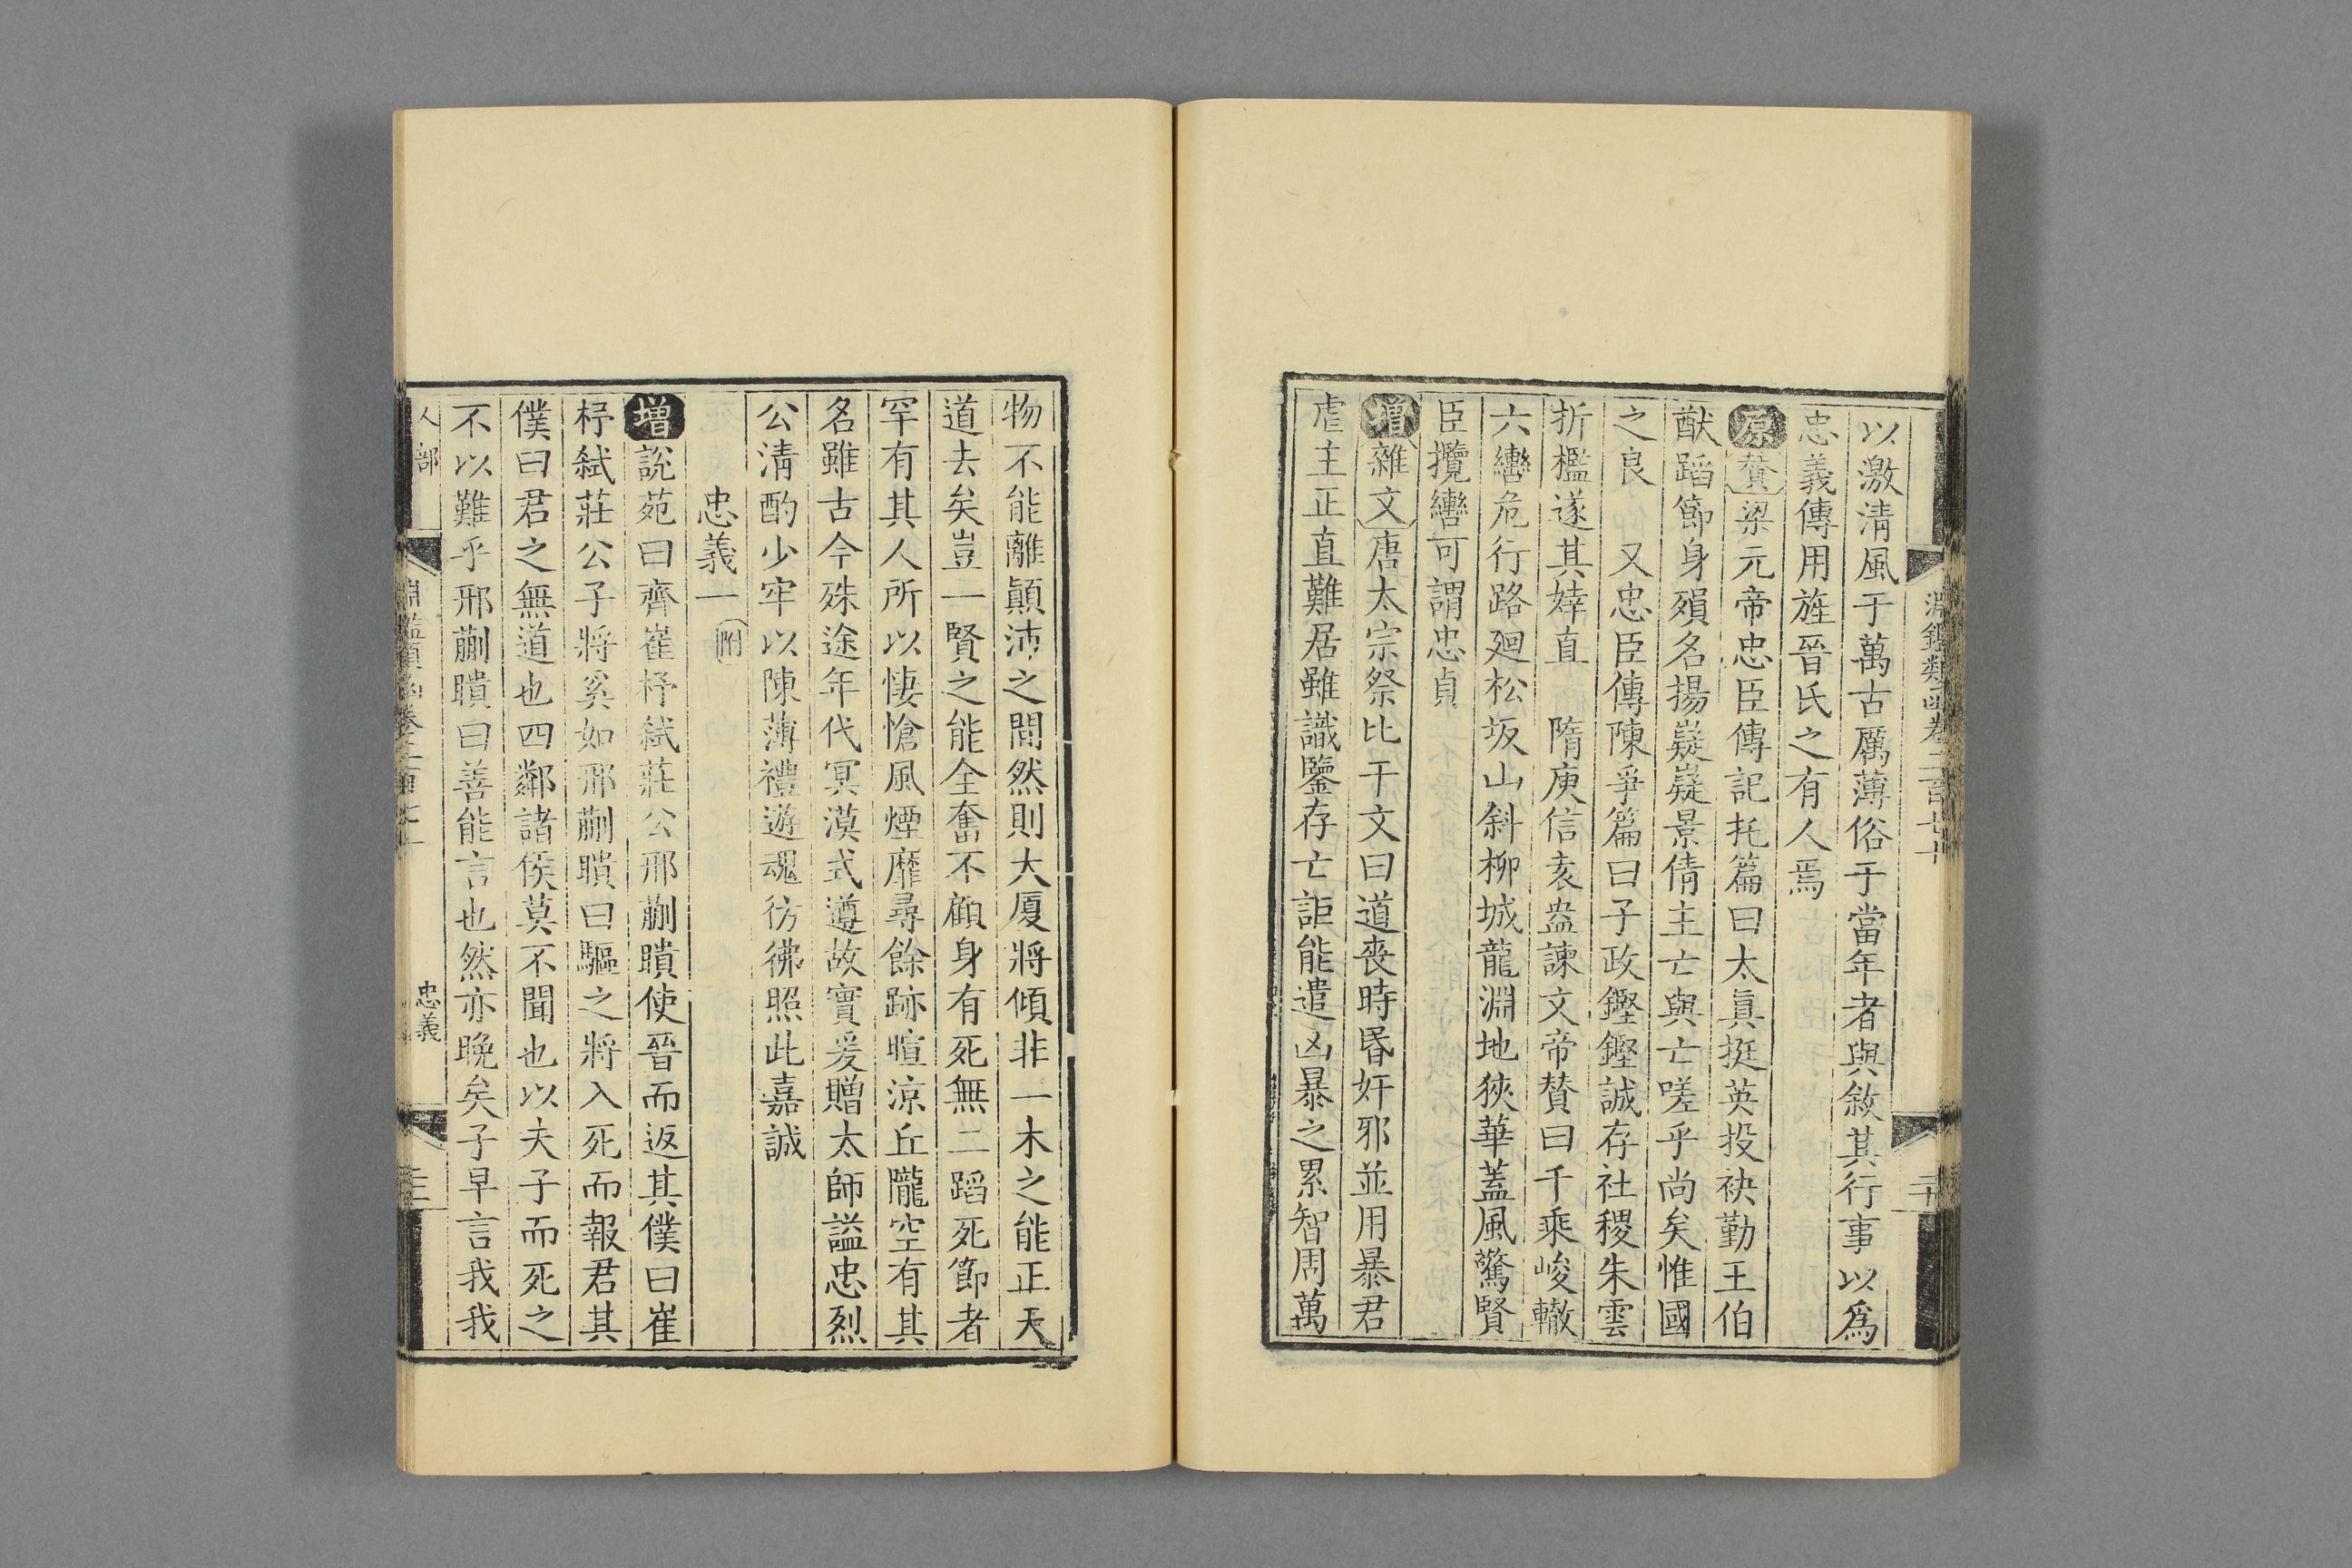 淵鑑類函卷二百七十
以激清風于萬古厲薄俗于當年者與敘其行事以爲
忠義傳用旌晉氏之有人焉
原贊梁元帝忠臣傳記托篇曰太眞挺英投袂勤王伯
猷蹈節身殞名揚嶷嶷景倩主亡與亡嗟乎尚矣惟國
之良　又忠臣傳陳爭篇曰子政鏗鏗誠存社稷朱雲
折檻遂其婞直　隋庾信袁盎諫文帝贊曰千乘峻轍
六轡危行路廻松坂山斜柳城龍淵地狹華蓋風驚賢
臣攬轡可謂忠貞
增雜文唐太宗祭比干文曰道喪時昬奸邪並用暴君
虐主正直難居雖識鑒存亡詎能遣凶暴之累智周萬
物不能離顚沛之間然則大厦將傾非一木之能正天
道去矣豈一賢之能全奮不顧身有死無二蹈死節者
罕有其人所以悽愴風煙靡尋餘跡暄涼丘隴空有其
名雖古今殊途年代冥漠式遵故實爰贈太師謚忠烈
公清酌少牢以陳薄禮遊魂彷彿照此嘉誠
忠義一附
增說苑曰齊崔杼弑莊公邢蒯聵使晉而返其僕曰崔
杼弑莊公子將奚如邢蒯聵曰驅之將入死而報君其
僕曰君之無道也四鄰諸侯莫不聞也以夫子而死之
不以難乎邢蒯聵曰善能言也然亦晚矣子早言我我
人部
忠義